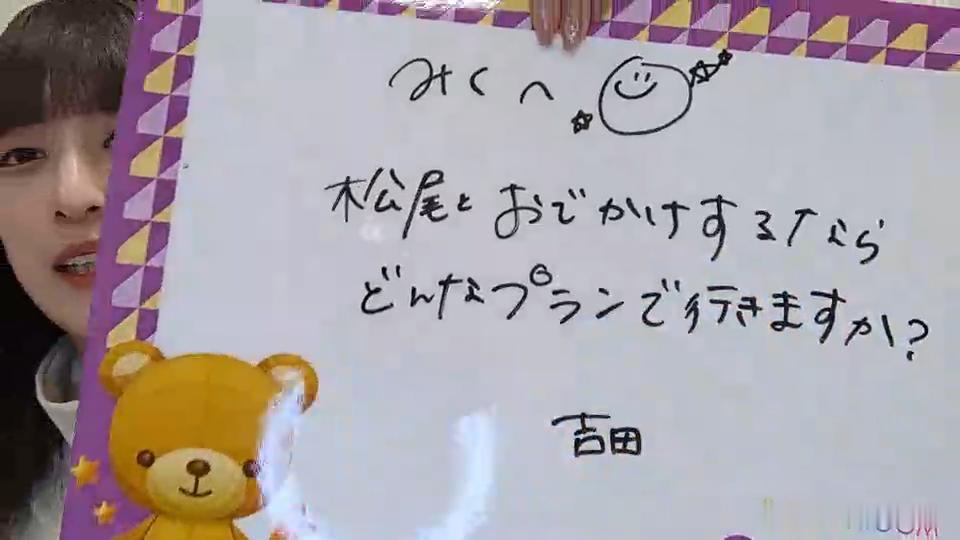 みくへ
松尾とおでかけするなら
どんなプランで行きますか?
吉田